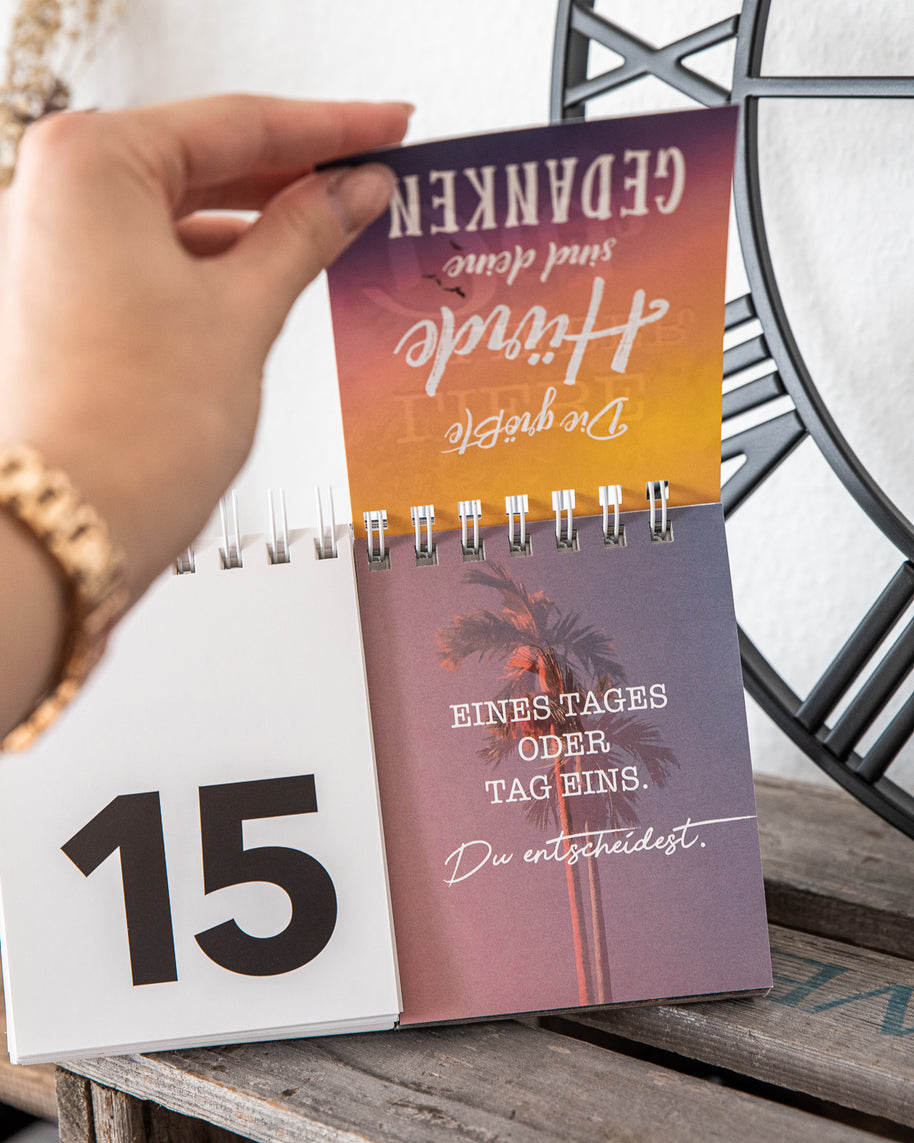 Die größte
Hürde
sind deine
GEDANKEN
EINES TAGES
ODER
TAG EINS.
Du entscheidest.
15
LIEBE